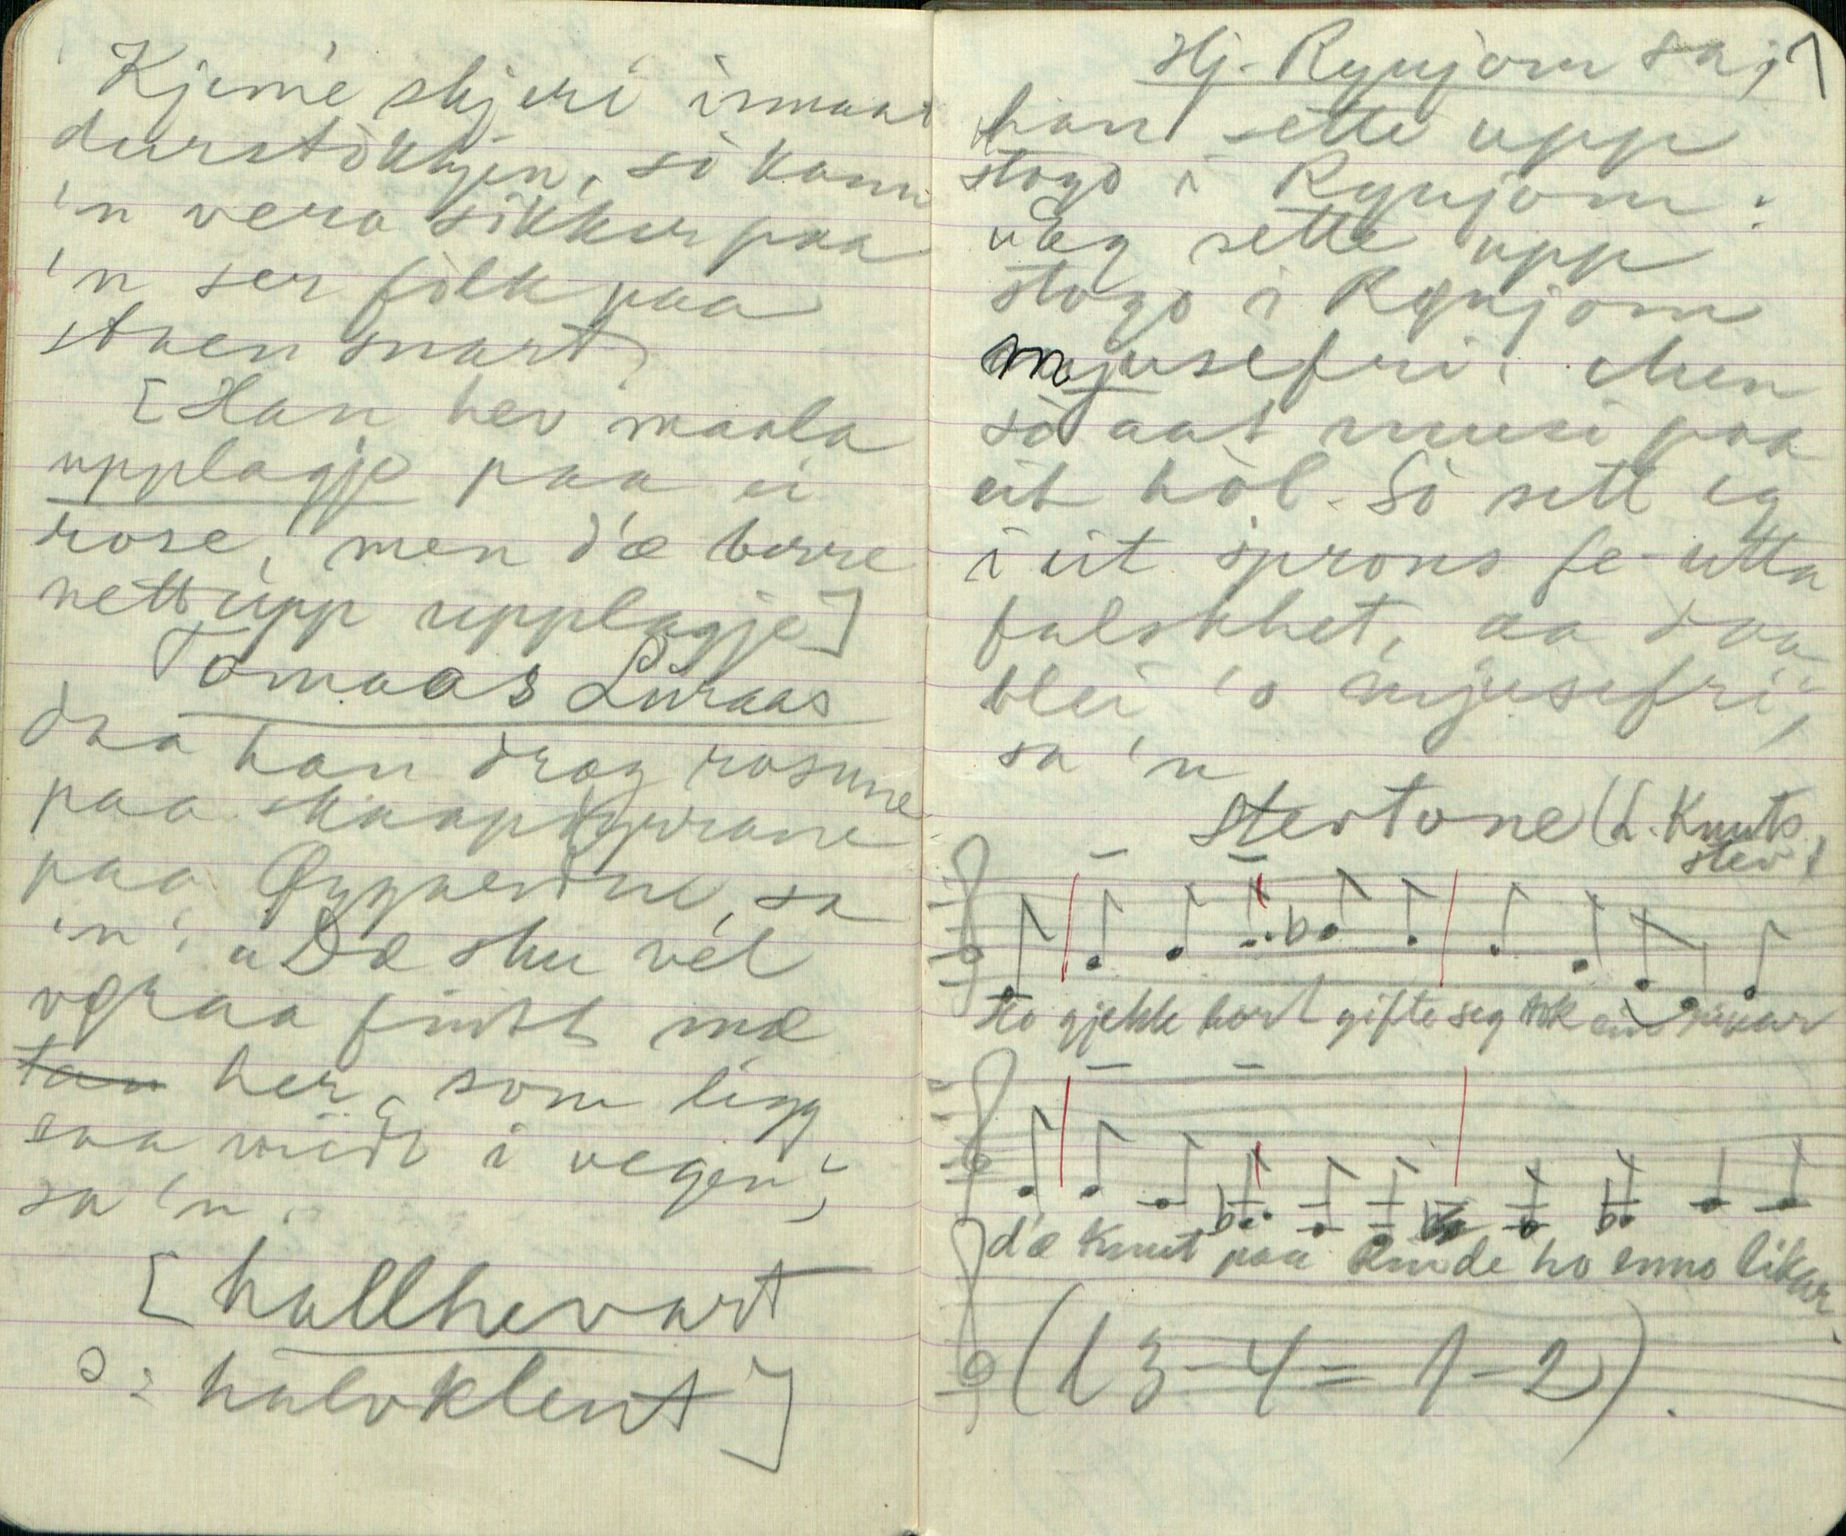 Kjeme skjeri innaat
durstòkkjen, so kann
'n vera sikker paa
'n ser fòlk paa
staen snart.
[Han hev maala
upplagje paa ei
rose, men d'æ berre
nettupp upplagje]
Tomaas Luraas
daa han drog rosune
paa skaap
paa Øygaerdne, sa
'n: "Dæ sku vel
vera finst mæ
tan her, som ligg
saa midt i vegen",
sa 'n.
[hallhevart
ɔ: halvklent]
Hj. Rynjom sa, 7
han sette upp
stogo i Rynjom:
"Eg sette upp
stogo i Rynjom
mjusefri. Men
so aat musi paa
eit hòl. So sett eg
i eit sprons fe-utta
falskhet, aa daa
blei 'o mjusefri",
sa 'n
Stevtone (L. Knuts
stev)
Ho gjekk bort gifte seg fekk ein
d'æ Knut paa Rinde ho enno likar.
(l 3-4 = 1-2).